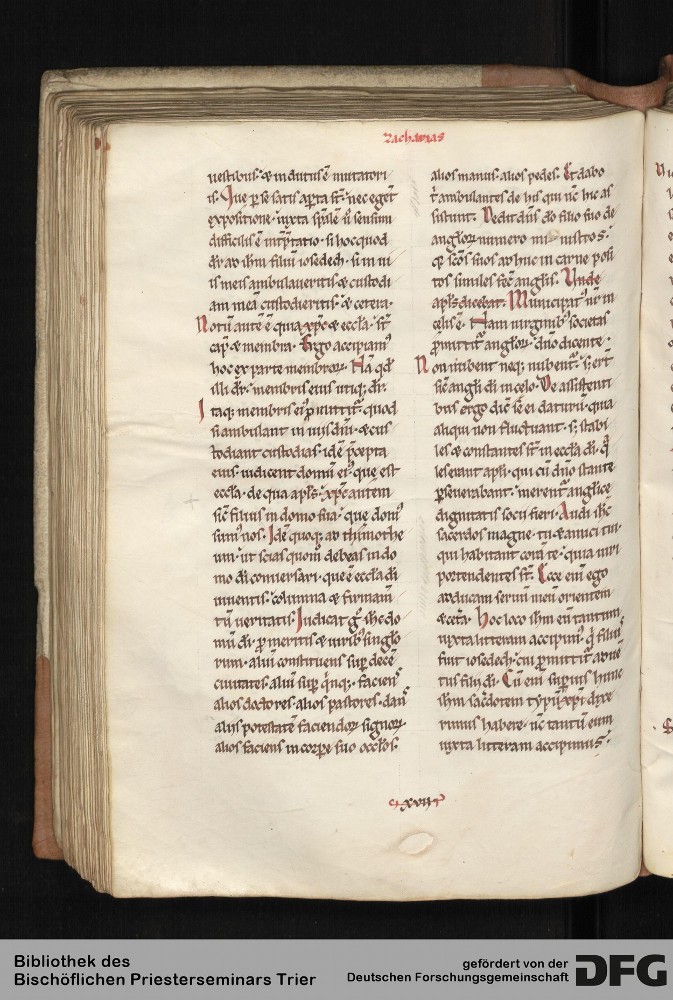 Zacharias
uestibus· & indutus ē mutatori
is· Que ꝑ se satis aꝑta st̄· nec eget
expositione· iuxta spālē ū sensum
difficilis ē int̄p̄tatio· si hoc quod
dr̄ ad ihm filiū iosedech· si in ui
is meis ambulaueritis & custodi
am meā custodieritis· & cetera·
Notū aute ē quia xp̄c & eccl̄a· st̄
cap̄ & membra· Ergo accipiam᷒
hoc ex parte membroꝝ· Nā qd̄
illi dr̄· membris eius utiq; dr̄·
Itaq; membris ei᷒ ꝓmittit᷒· quod
si ambulant in uiis dn̄i· & cus
todiant custodias· idē p̄cepta
eius· iudicent domū ei᷒· que est
eccl̄a· de qua apl̄s· xp̄c autem
sic̄ filius in domo sua· que dom᷒
sum᷒ nos· Idē quoq; ad thimothe
um· ut scias quom̄ debeas in do
mo dī conuersari· que ē eccl̄a dī
uiuentis· columna & firmam̄
tū ueritatis· Iudicat g᷒ ihc do
mū dī· ꝓ meritis & uirib᷒ singlo
rum· aliū constituens sup̄ decē
ciuitates· aliū sup̄ q̄nq;· faciens
alios doctores· alios pastores· dans
aliis potestatē faciendoꝝ signoꝝ·
alios faciens in corꝑe suo oc̄los·
alios manus· alios pedes· Et dabo
t̄ ambulantes de his qui nc̄ hic as
sistunt· Dedit dn̄s dō filio suo de
angloꝝ numero ministros·
qꝫ sc̄os suos adhuc in carne posi
tos similes fec̄ anglis· Unde
apl̄s dicebat· Municipat᷒ nr̄ in
celis ē· Nam uirginib᷒ societas
ꝓmittit᷒ angloꝝ· dn̄o dicente·
Non nubent neq; nubent᷒· s; er̄t
sic̄ angli dī in celo· De assistenti
bus ergo diē se ei daturū· quia
aliqui non fluctuant· s; stabi
les & constantes st̄ in eccl̄a dī· q̄
les erant apl̄i· qui cū dn̄o stante
ꝑseuerabant· merent᷒ anglice
dignitatis socii fieri· Audi ihc
sacerdos magne· tu & amici tui·
qui habitant corā te· quia uiri
portendentes st̄· Ecce eni ego
adducam seruū meū orientem
& cet̄a· Hoc loco ihm eū tantum
iuxta litteram accipim᷒· q̄ filius
fuit iosedech· cui ꝓmittit᷒ aduē
tus filii dī· Cū eni superius hunc
ihm sac̄dotem typū xp̄i dixe
rimus habere· nc̄ tantū eum
iuxta litteram accipimus·
xvii
Bibliothek des
Bischöflichen Priesterseminars Trier
gefördert von der
Deutschen Forschungsgemeinschaft
DFG